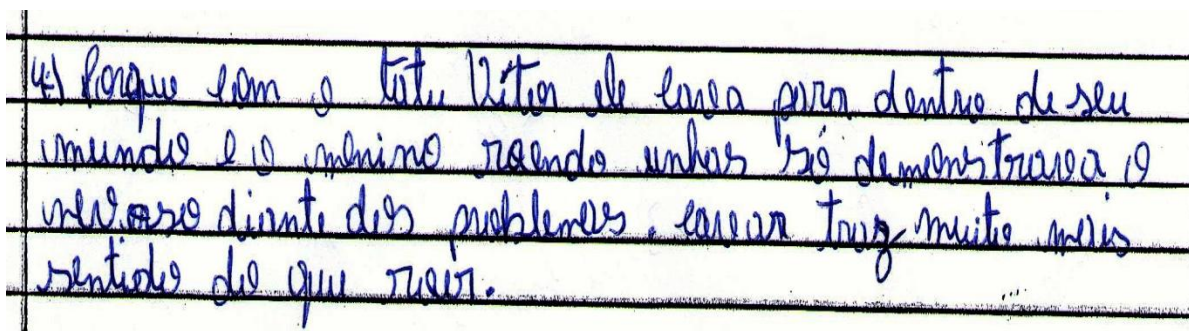 4) Porque com o tatu Vitor ele cava para dentro de seu
mundo e o menino roendo unhas só demonstrava o
nervoso diante dos problemas. cavar traz muito mais
sentido do que roer.